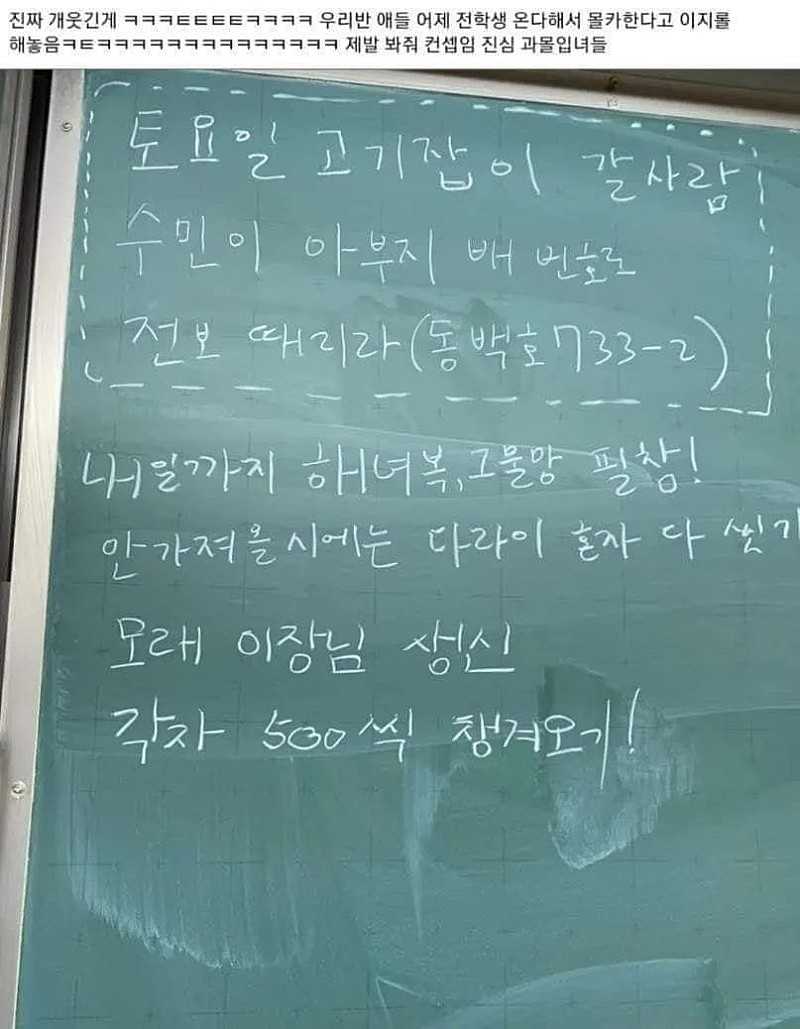 진짜 개웃긴게 ㅋㅋㅋㅌㅌㅌㅌㅋㅋㅋㅋ 우리반 애들 어제 전학생 온다해서 몰카한다고 이지롤
해놓음ㅋㅌㅋㅋㅋㅋㅋㅋㅋㅋㅋㅋㅋㅋㅋㅋ 제발 봐줘 컨셉임 진심 과몰입녀들
토요일 고기잡이 갈사람
수민이 아부지 배 번호로
전보 때리라(동백호733-2)
내일까지 해녀복,그물망 필참!
안가져올시에는 다라이 혼자 다 씻기
모래 이장님 생신
각자 500씩 챙겨오기!